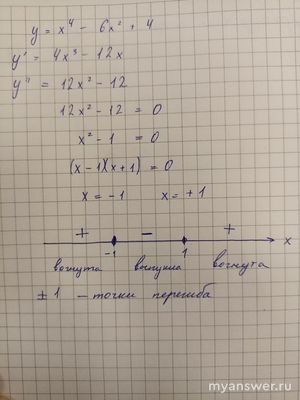 y = x⁴ - 6x² + 4
y' = 4x³ - 12x
y'' = 12x² - 12
12x² - 12 = 0
x² - 1 = 0
(x-1)(x+1) = 0
x = -1 x = +1
+ - +
-1 1 x
вогнута выпукла вогнута
± 1 - точки перегиба
myanswer.ru